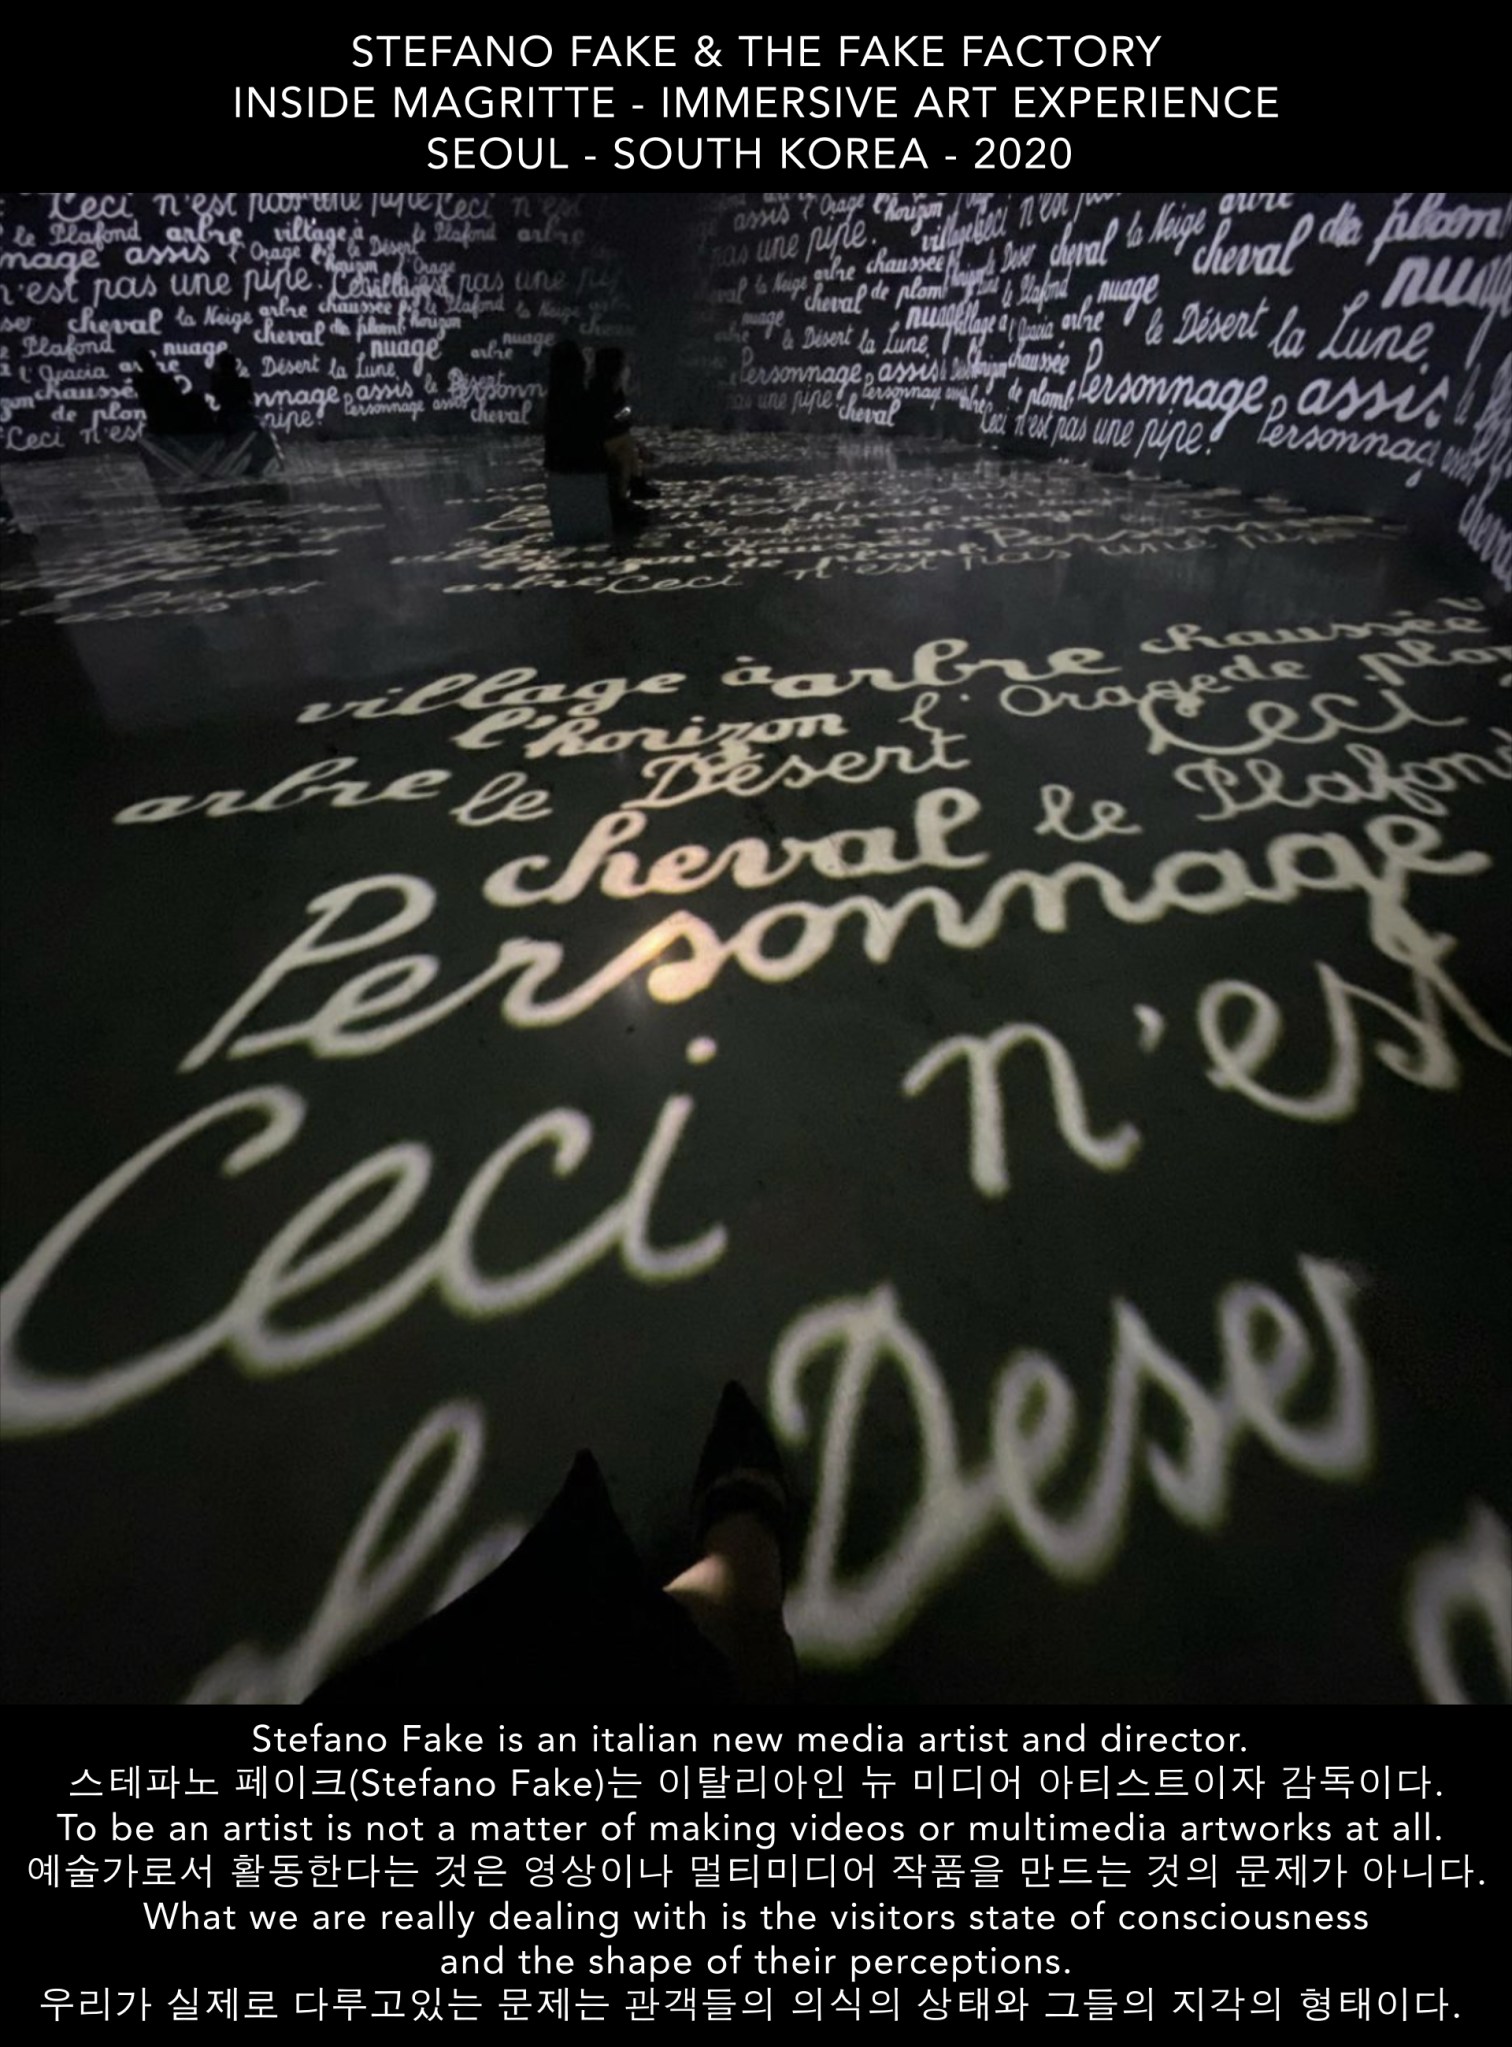 STEFANO FAKE & THE FAKE FACTORY
INSIDE MAGRITTE - IMMERSIVE ART EXPERIENCE
SEOUL - SOUTH KOREA - 2020
Ceci n'est pas une pipe Ceci n'est
le Plafond arbre village à le Plafond arbre
nage assis l'Orage le Désert
n'est pas une pipe. pas une
cheval la Neige arbre chaussée le Plafond la Neige
cheval de plomb horizon
Plafond nuage nuage arbre nuage
l'Acacia le Désert la Lune
chaussée nnage assis le Désert
de plom pipe. Personnage assis cheval
Ceci n'est
assis l'Orage l'horizon n'est arbre
pas une pipe. village Ceci cheval la Neige cheval de plom
la Neige arbre chaussée
cheval de plomb le Plafond nuage nuag
nuage nuage village à l'Acacia arbre le Désert la Lune
le Désert la Lune chaussée
Personnage assis de plomb Personnage assis le
pas une pipe. Personnage arbre Ceci n'est pas une pipe. Personnag
cheval
arbre Ceci n'est pas une
village à arbre chaussée
l'horizon l'Orage de plom
arbre le Désert Ceci
cheval le Plafond
Personnage
Ceci n'est
le Déser
Stefano Fake is an italian new media artist and director.
스테파노 페이크(Stefano Fake)는 이탈리아인 뉴 미디어 아티스트이자 감독이다.
To be an artist is not a matter of making videos or multimedia artworks at all.
예술가로서 활동한다는 것은 영상이나 멀티미디어 작품을 만드는 것의 문제가 아니다.
What we are really dealing with is the visitors state of consciousness
and the shape of their perceptions.
우리가 실제로 다루고있는 문제는 관객들의 의식의 상태와 그들의 지각의 형태이다.